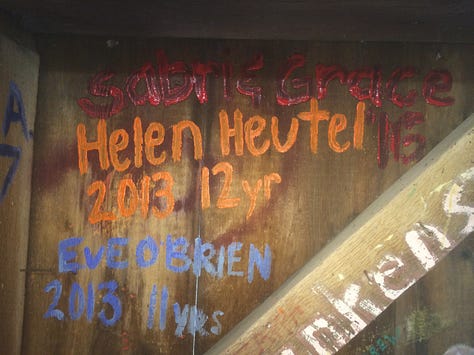 Sabri & Grace
'15
Helen Heutel
2013 12yr
EVE O BRIEN
2013 11yrs
A.
7